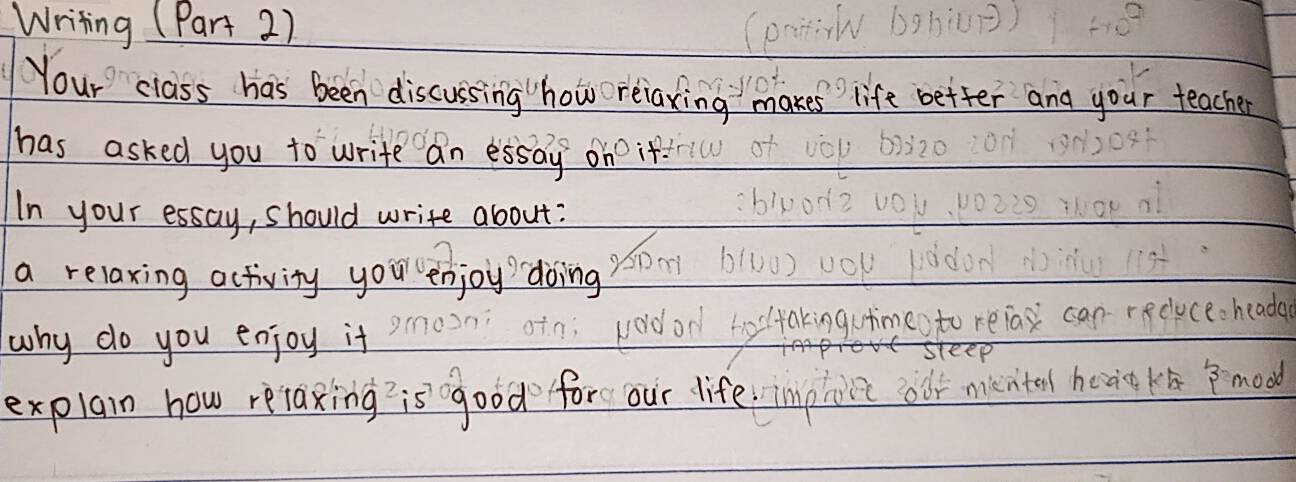 Writing (Part 2)
Your class has been discussing how relaxing makes life better and your teacher
has asked you to write an essay on it
In your essay, should write about:
a relaxing activity you enjoy doing
why do you enjoy it taking time to relax can reduce headac
improve sleep
explain how relaxing is good for our life. improve our mental health & mood